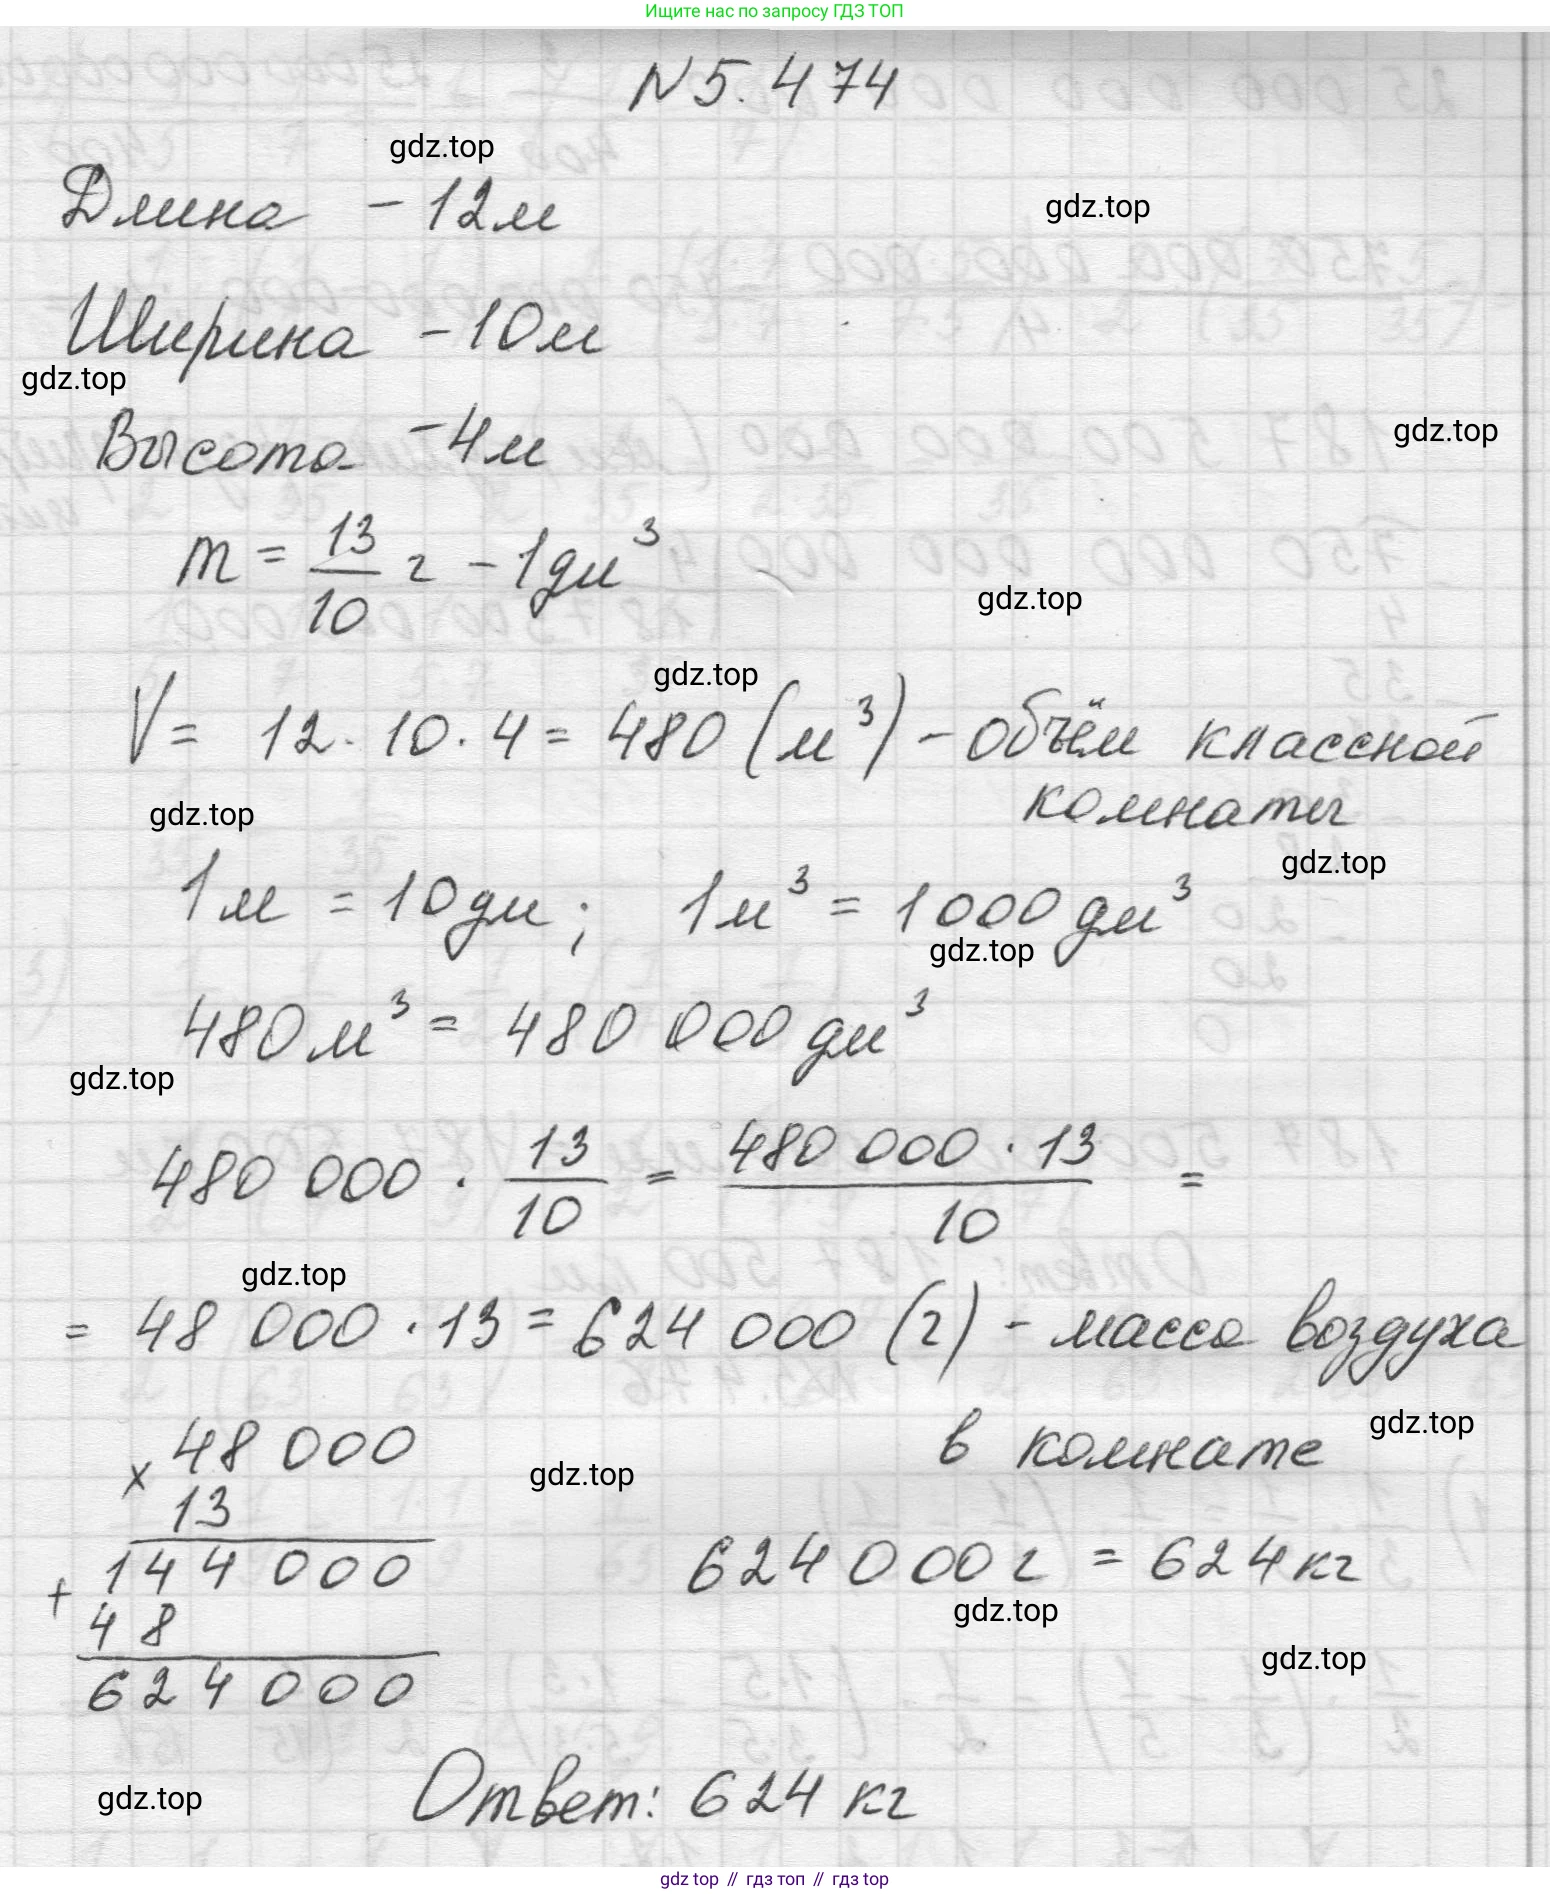 Ищите нас по запросу ГДЗ ТОП
N 5.474
gdz.top
Длина - 12м
gdz.top
Ширина - 10м
gdz.top
Высота - 4м
gdz.top
m = 13/10 г - 1дм³
gdz.top
gdz.top
V = 12 · 10 · 4 = 480 (м³) - объём классной
комнаты
gdz.top
gdz.top
1м = 10дм; 1м³ = 1000дм³
gdz.top
480м³ = 480 000 дм³
gdz.top
480 000 · 13/10 = 480 000 · 13/10 =
gdz.top
= 48 000 · 13 = 624 000 (г) - масса воздуха
в комнате
gdz.top
× 48 000
gdz.top
13
144 000
624 000 г = 624кг
gdz.top
+ 48
gdz.top
624 000
gdz.top
Ответ: 624 кг
gdz top // гдз топ // гдз top